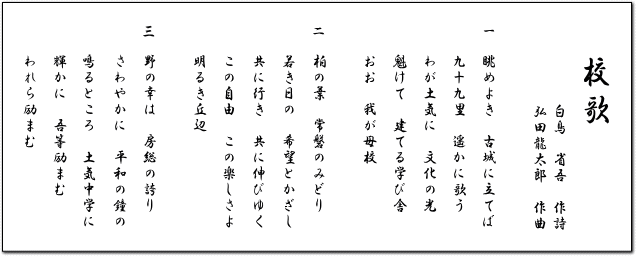 校歌
白鳥 省吾 作詩
弘田龍太郎 作曲
一 眺めよき 古城に立てば
九十九里 遥かに歌う
わが土気に 文化の光
魁けて 建てる学び舎
おお 我が母校
二 柏の葉 常盤のみどり
若き日の 希望とかざし
共に行き 共に伸びゆく
この自由 この楽しさよ
明るき丘辺
三 野の幸は 房総の誇り
さわやかに 平和の鐘の
鳴るところ 土気中学に
輝かに 吾等励まむ
われら励まむ